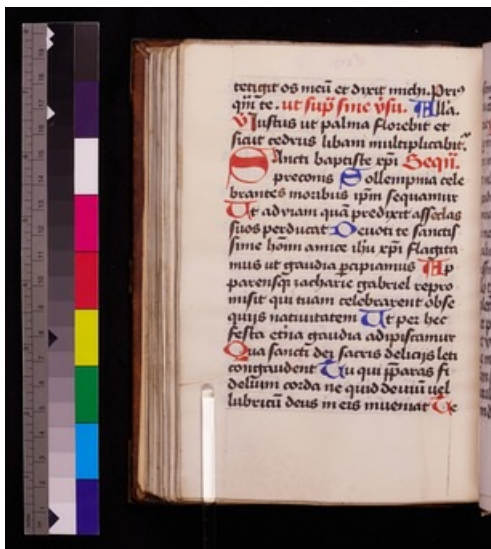 tetigit os meū et dixit michi. Pri⁹
q̄m te. ut sup̄ sine v̄su. Alla.
V Iustus ut palma florebit et
sicut cedrus libani multiplicabit̄.
Sancti baptiste xp̄i Seqū.
preconis Sollempnia cele
brantes moribus ip̄m sequamur
Ut ad viam quā predixit asseclas
suos perducat Devoti te sanctis
sime hoīm amice ih̄u xp̄i flagita
mus ut gaudia ꝑcipiamus Ap
parensq̄ zacharie gabriel repro
misit qui tuam celebrarent obse
quijs nativitatem Ut per hec
festa et̄na gaudia adipiscamur
Qua sancti dei sacris delicijs leti
congaudent Tu qui p̄paras fi
delium corda ne quid deviū vel
lubricū deus in eis inveniat Te